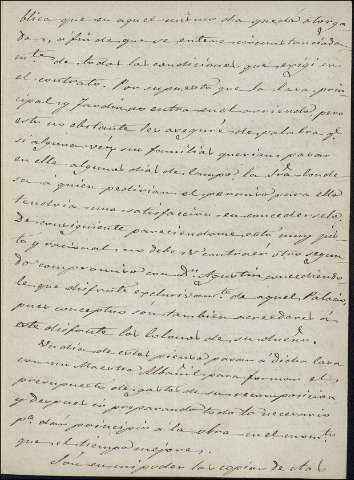 blica que en aquel mismo dia quedó otorga-
da, á fin de que se entere circunstanciada-
mte. de todas las condiciones que exigí en
el contrato. Por supuesto que la Casa prin-
cipal y Jardin no entra en el arriendo, pero
esto no obstante les aseguré de palabra qe.
si alguna vez sus familias querian pasar
en ella algunos dias de campo la Sra. Conde-
sa a quien pedirian el permiso para ello
tendria una satisfaccion en concederselo.
De consiguiente pareciendome esto muy jus-
to y racional no debe V. contraér otro segun-
do compromiso con Dn. Agustin concediendo-
le que disfrute exclusivamte. de aquel Palacio,
pues conceptuo son tambien acreedores á
este disfrute los Colonos de su dueña.
Un dia de estos pienso pasar á dicha Casa
con un Maestro Albañil para formar el
presupuesto de gastos de su recomposicion
y despues iré preparando todo lo necesario
pa. dar principio á la obra en el momto.
que el tiempo mejore.
Son en mi poder las copias de las